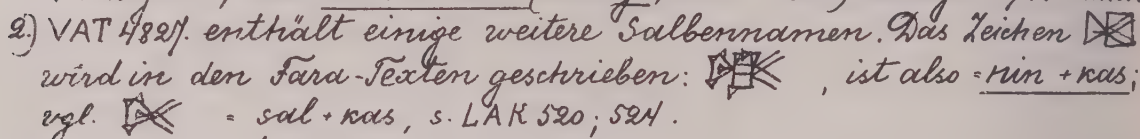 2.) VAT 4827. enthält einige weitere Salbennamen. Das Zeichen
wird in den Fara-Texten geschrieben: , ist also = nin + kas;
vgl. = sal + kas, s. LAK 520; 524.